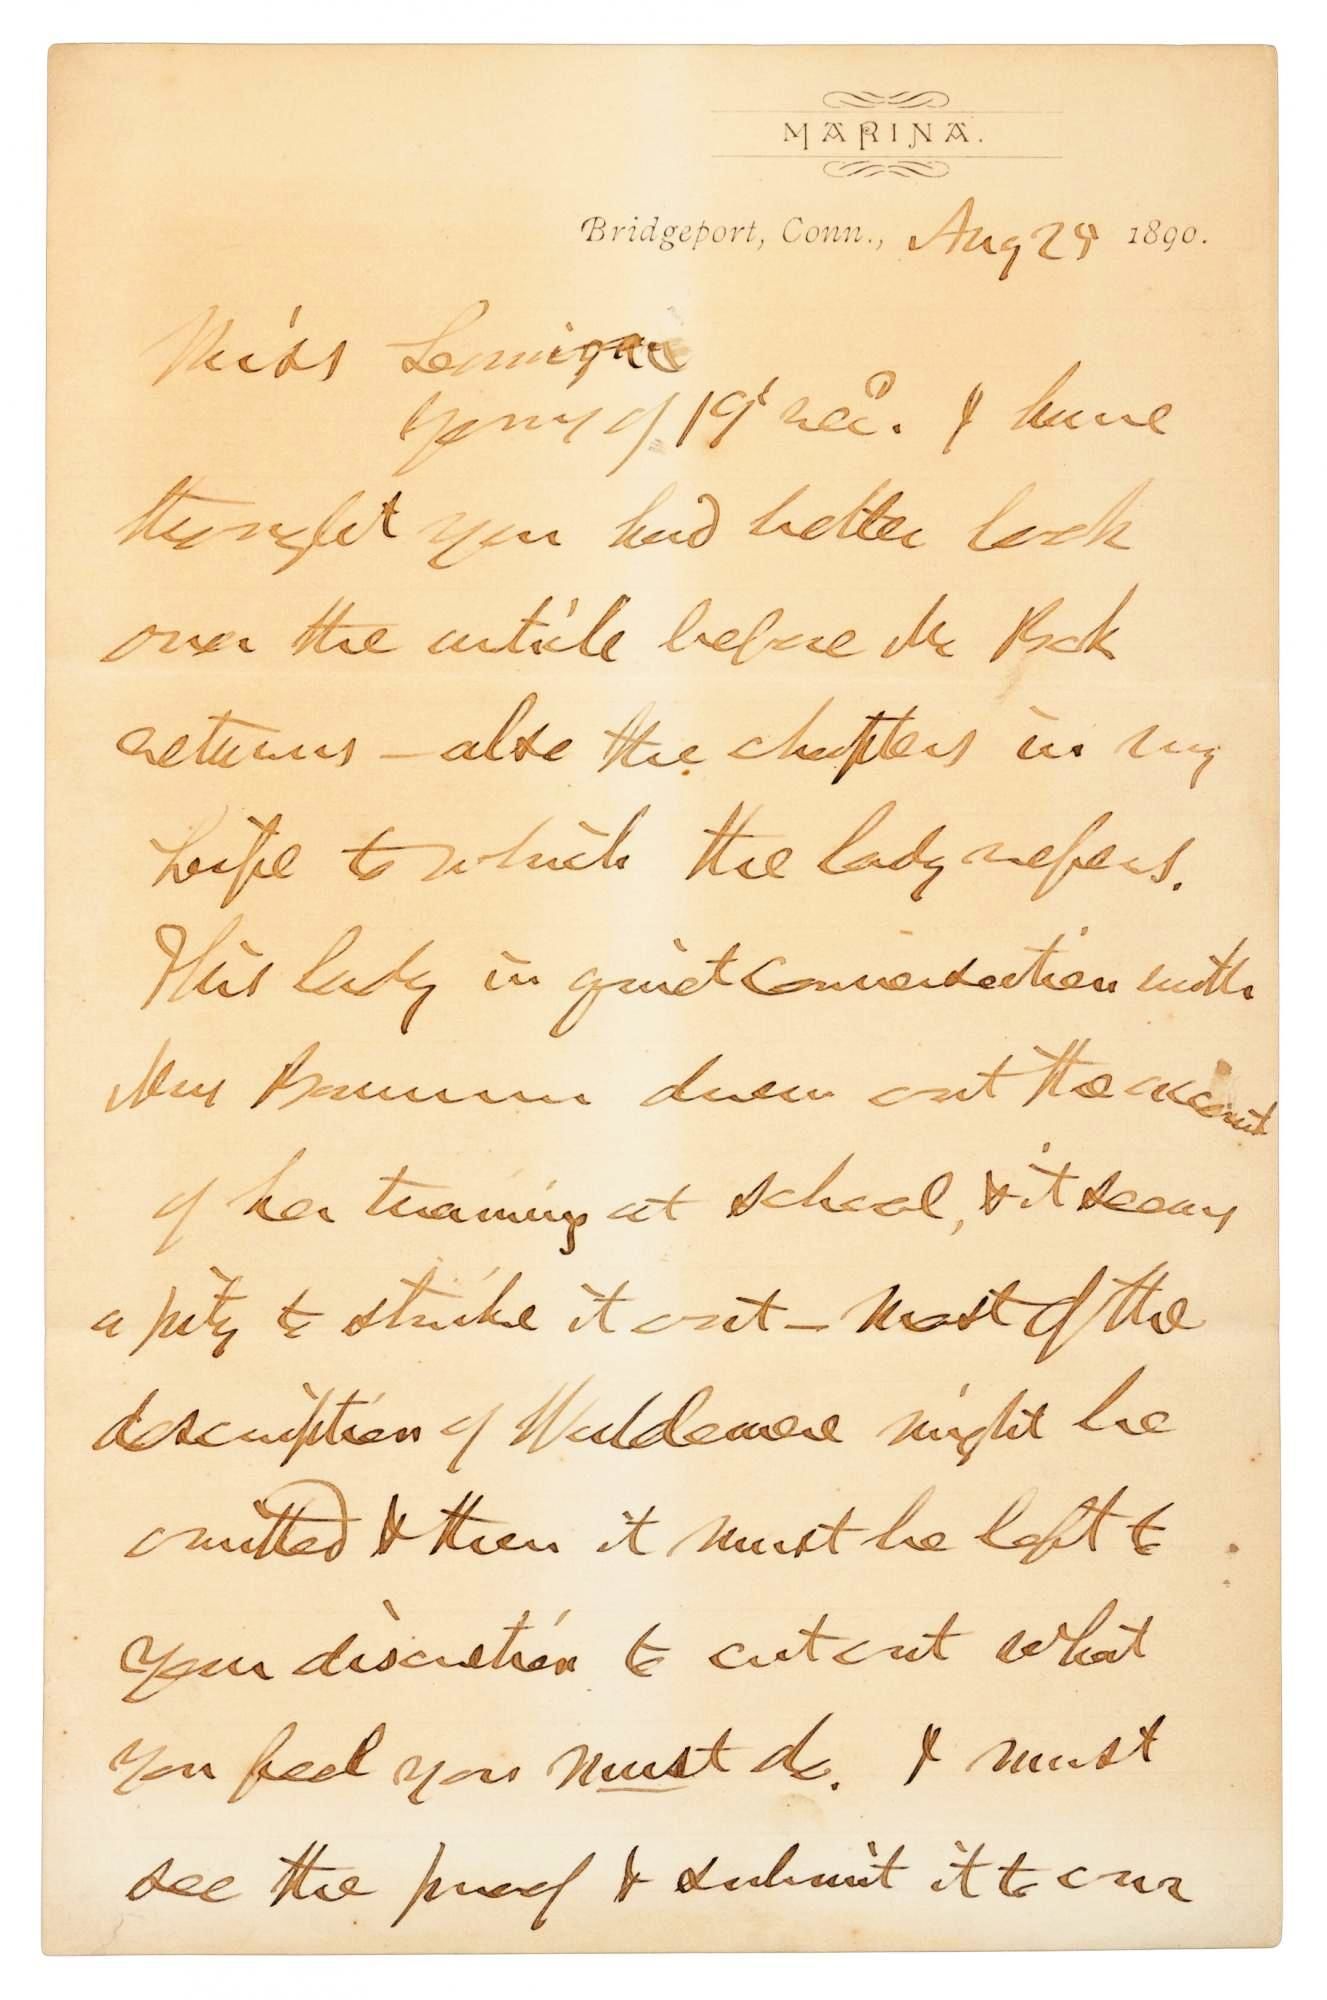 MARINA.
Bridgeport, Conn., Aug 24 1890.
Miss
Yours of 19' rec'd. I have
thought you had better look
over the article before Mr Bok
returns – also the chapters in my
Life to which the lady refers.
This lady in quiet conversation with
Mrs Barnum drew out the account
of her training at school, & it seems
a pity to strike it out – Most of the
description of Waldemere might be
omitted & then it must be left to
your discretion to cut out what
you feel you must do. I must
see the proof & submit it to our